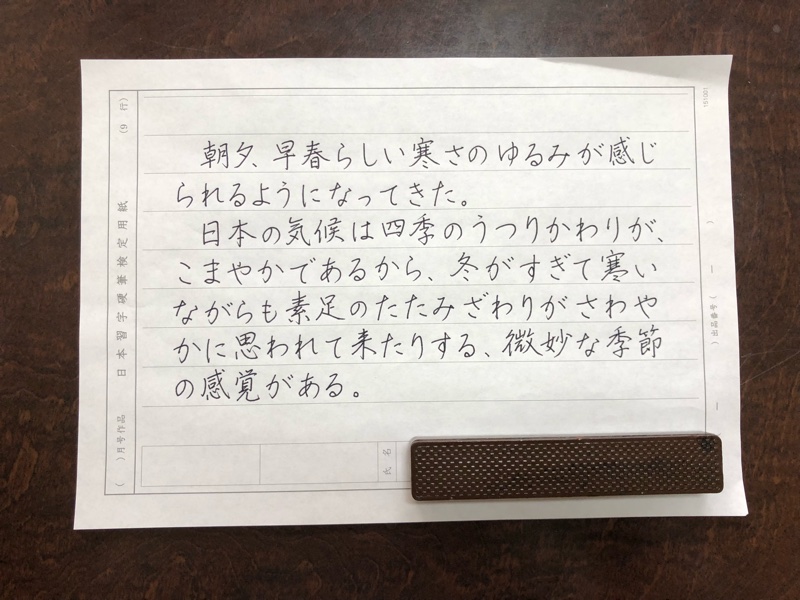 朝夕、早春らしい寒さのゆるみが感じ
られるようになってきた。
日本の気候は四季のうつりかわりが、
こまやかであるから、冬がすぎて寒い
ながらも素足のたたみざわりがさわや
かに思われて来たりする、微妙な季節
の感覚がある。
氏名
( )月号作品 日本習字硬筆検定用紙 (9行)
151001
)出品番号( ー ー )